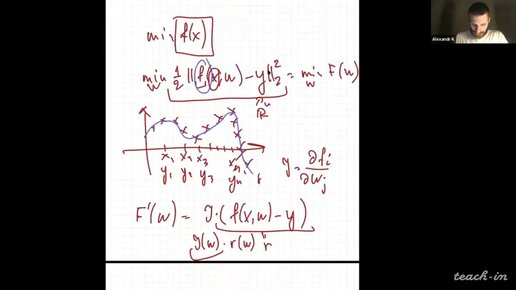 min f(x)
min 1/2 ||f(x,w) - y||₂² = min F(w)
w w
ℝⁿ
x₁ x₂ x₃
y₁ y₂ y₃
y = ∂fᵢ/∂wⱼ
F'(w) = J·(f(x,w) - y)
J(w)·r(w) r
Alexandr K.
teach-in